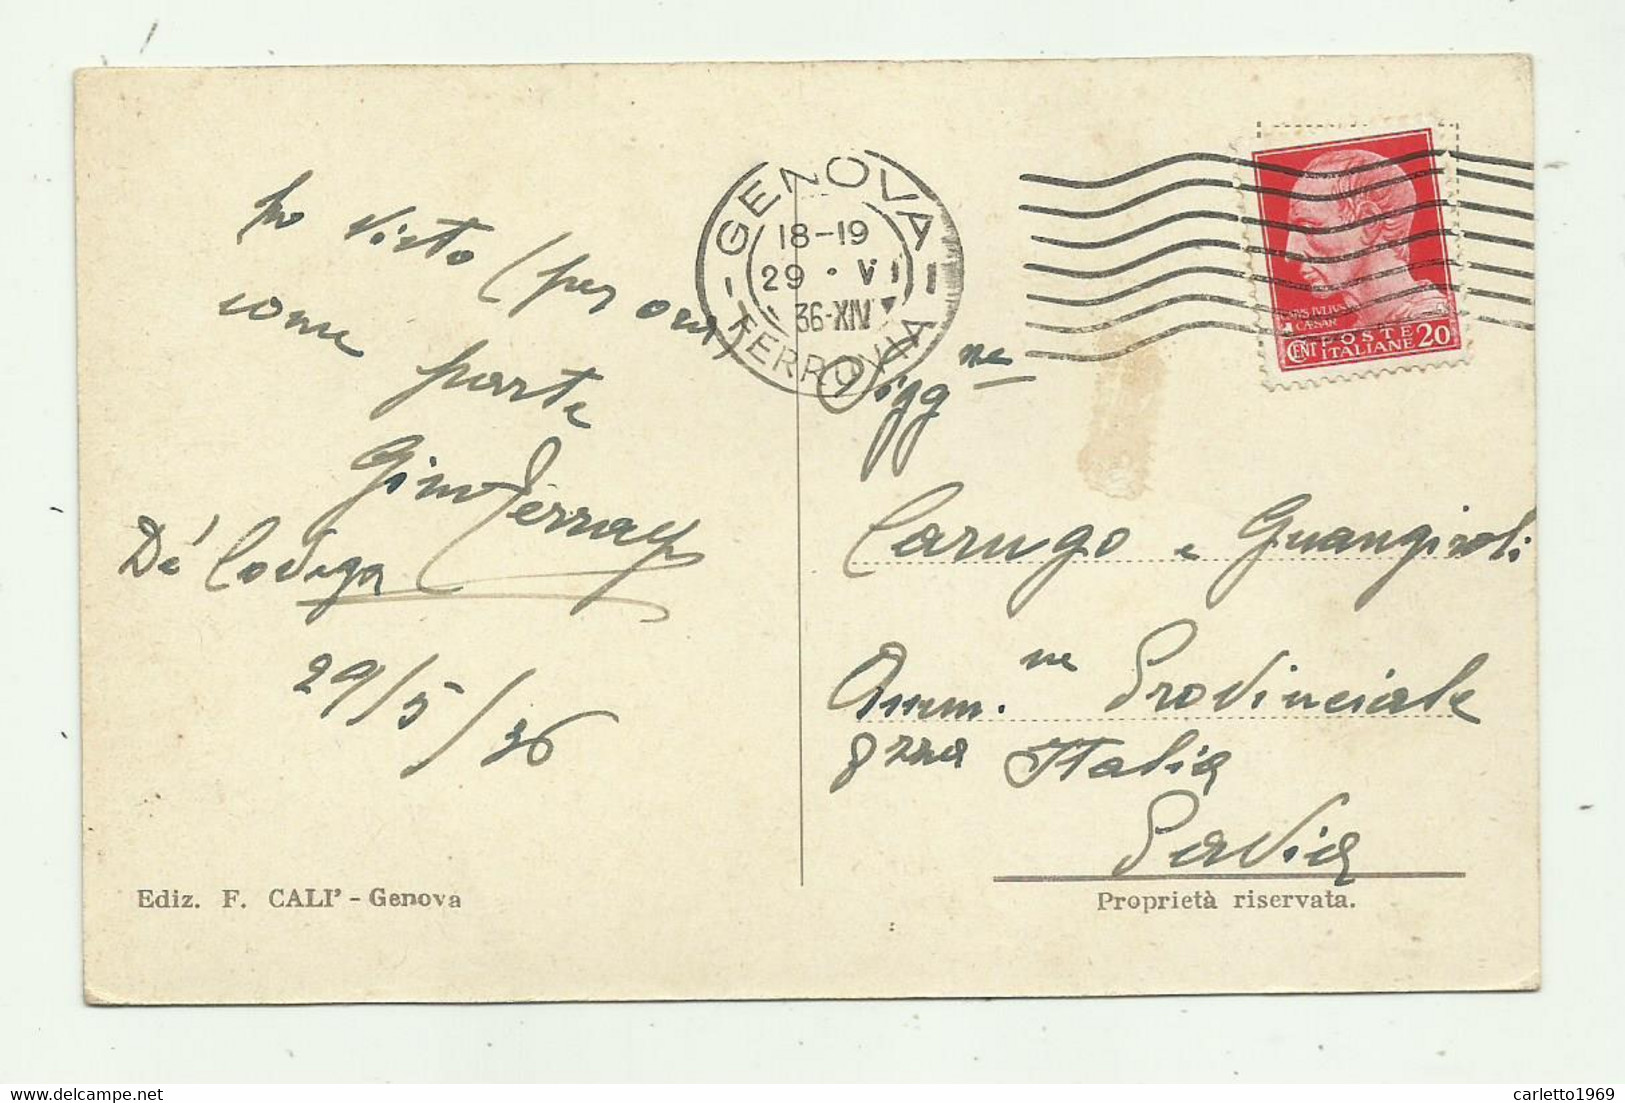 ho visto (per ora)
come parte
Gino
De' Codega
29/5/36
Ediz. F. CALI' - Genova
GENOVA
18-19
29 • V
36-XIV
FERROVIA
CAIUS IVLIUS
CÆSAR
CENT POSTE 20
ITALIANE
Sigg ne
Carugo e Guangiroli
Amm. ne Provinciale
Pzza Italia
Pavia
Proprietà riservata.
carletto1969